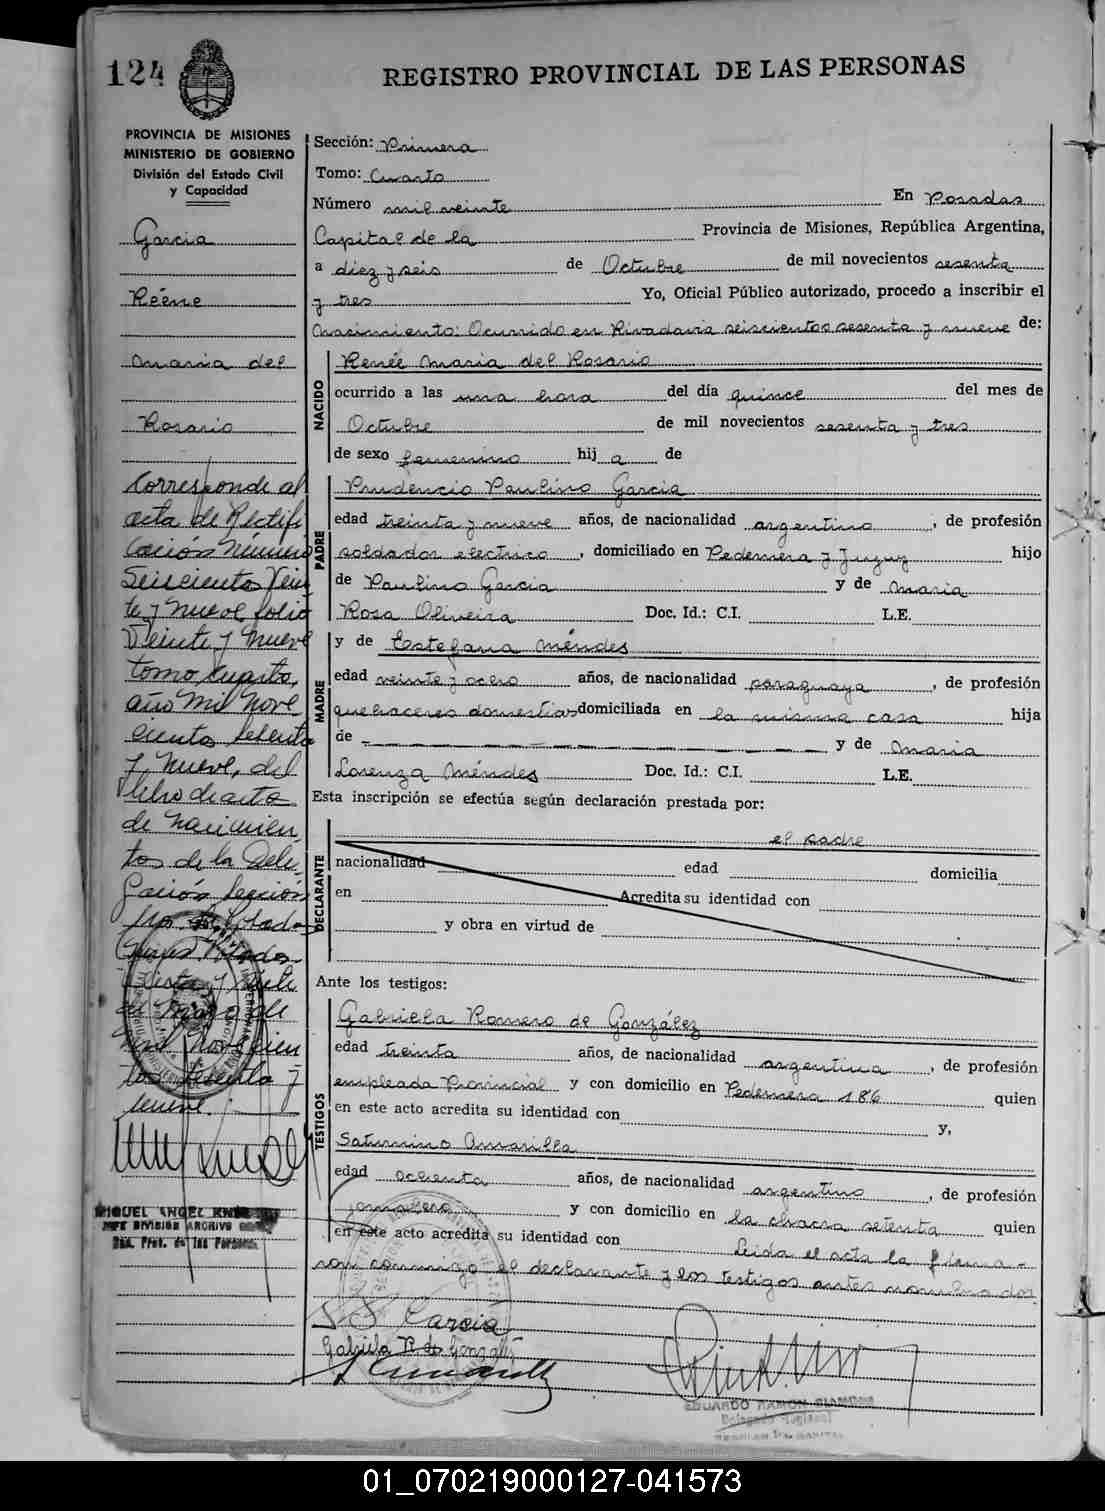 124
REGISTRO PROVINCIAL DE LAS PERSONAS
PROVINCIA DE MISIONES
MINISTERIO DE GOBIERNO
División del Estado Civil
y Capacidad
Garcia
Réene
Maria del
Rosario
Corresponde al
acta de Rectifi
cación Número
Seiscientos Vein
te y Nueve folio
Veinte y Nueve
tomo cuarto,
año Mil Nove
cientos setenta
y Nueve, del
libro de acta
de Nacimien
tos de la Dele
gación Sección
de
Mil Novecien
tos setenta y
nueve.
MIGUEL ANGEL
JEFE DIVISION ARCHIVO
Reg. Prov. de las Personas
Sección: Primera
Tomo: Cuarto
Número mil veinte En Posadas
Capital de la Provincia de Misiones, República Argentina,
a diez y seis de Octubre de mil novecientos sesenta
y tres Yo, Oficial Público autorizado, procedo a inscribir el
nacimiento: Ocurrido en Rivadavia seiscientos sesenta y nueve de:
NACIDO
Renée Maria del Rosario
ocurrido a las una hora del día quince del mes de
Octubre de mil novecientos sesenta y tres
de sexo femenino hij a de
PADRE
Prudencio Paulino Garcia
edad treinta y nueve años, de nacionalidad argentino, de profesión
soldador electrico, domiciliado en Pedernera y Jujuy hijo
de Paulino Garcia y de Maria
Rosa Oliveira Doc. Id.: C.I. L.E.
MADRE
y de Estefana Méndes
edad veinte y ocho años, de nacionalidad paraguaya, de profesión
quehaceres domestias domiciliada en la misma casa hija
de y de Maria
Lorenza Méndes Doc. Id.: C.I. L.E.
Esta inscripción se efectúa según declaración prestada por:
DECLARANTE
el padre
nacionalidad edad domicilia
en Acredita su identidad con
y obra en virtud de
Ante los testigos:
TESTIGOS
Gabriela Romero de González
edad treinta años, de nacionalidad argentina, de profesión
empleada Provincial y con domicilio en Pedernera 186 quien
en este acto acredita su identidad con y,
Saturnino Amarilla
edad ochenta años, de nacionalidad argentino, de profesión
jornalero y con domicilio en la chacra setenta quien
en este acto acredita su identidad con Leida el acta la firma-
ron conmigo el declarante y los testigos antes nombrados.
Garcia
Gabriela R. de González
EDUARDO RAMON
Delegado Regional
01_070219000127-041573